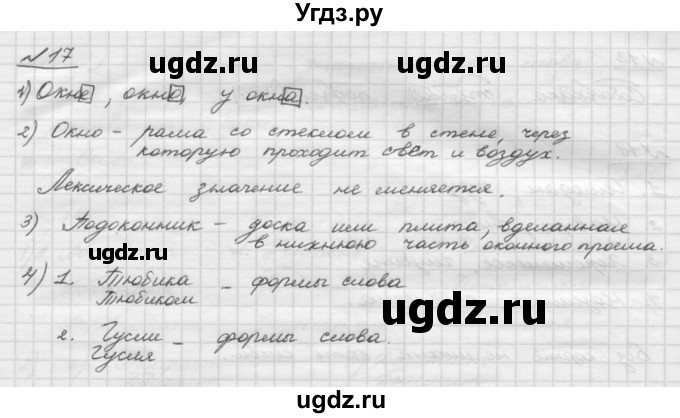 Угдз.ру
№17
1) Окне, окно, у окна.
2) Окно - рама со стеклом в стене, через
которую проходит свет и воздух.
Лексическое значение не меняется.
3) Подоконник - доска или плита, вделанная
в нижнюю часть оконного проема.
4) 1. Тюбика - формы слова
Тюбиком
2. Гусли - формы слова.
Гусля
ugdz.ru
ugdz.ru
ugdz.ru
ugdz.ru
ugdz.ru
ugdz.ru
Угдз.ру